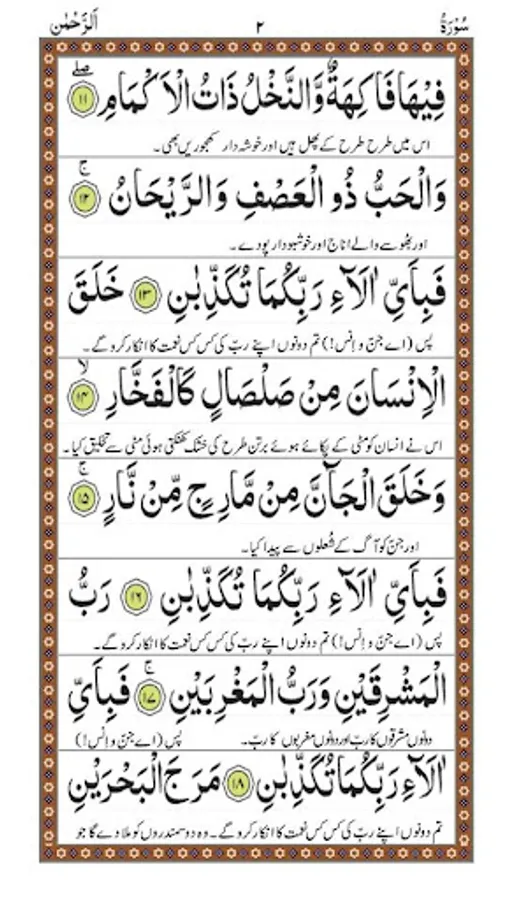 سُوْرَةُ ٢ اَلرَّحْمٰن
فِيْهَا فَاكِهَةٌ وَّالنَّخْلُ ذَاتُ الْاَكْمَامِ ۖ ١١
اس میں طرح طرح کے پھل ہیں اور خوشہ دار کھجوریں بھی۔
وَالْحَبُّ ذُو الْعَصْفِ وَالرَّيْحَانُ ۚ ١٢
اور بُھوسے والے اناج اور خوشبودار پودے۔
فَبِاَيِّ اٰلَآءِ رَبِّكُمَا تُكَذِّبٰنِ ١٣ خَلَقَ
پس (اے جن و اِنس!) تم دونوں اپنے ربّ کی کس کس نعمت کا انکار کرو گے۔
الْاِنْسَانَ مِنْ صَلْصَالٍ كَالْفَخَّارِ ۙ ١٤
اس نے انسان کو مٹی کے پکائے ہوئے برتن طرح کی خشک کھنکتی ہوئی مٹی سے تخلیق کیا۔
وَخَلَقَ الْجَآنَّ مِنْ مَّارِجٍ مِّنْ نَّارٍ ۚ ١٥
اور جن کو آگ کے شعلوں سے پیدا کیا۔
فَبِاَيِّ اٰلَآءِ رَبِّكُمَا تُكَذِّبٰنِ ١٦ رَبُّ
پس (اے جن و اِنس!) تم دونوں اپنے ربّ کی کس کس نعمت کا انکار کرو گے۔
الْمَشْرِقَيْنِ وَرَبُّ الْمَغْرِبَيْنِ ۚ ١٧ فَبِاَيِّ
دونوں مشرقوں کا ربّ اور دونوں مغربوں کا ربّ۔ پس (اے جن و اِنس!)
اٰلَآءِ رَبِّكُمَا تُكَذِّبٰنِ ١٨ مَرَجَ الْبَحْرَيْنِ
تم دونوں اپنے ربّ کی کس کس نعمت کا انکار کرو گے۔ وہ دو سمندروں کو ملا دے گا جو